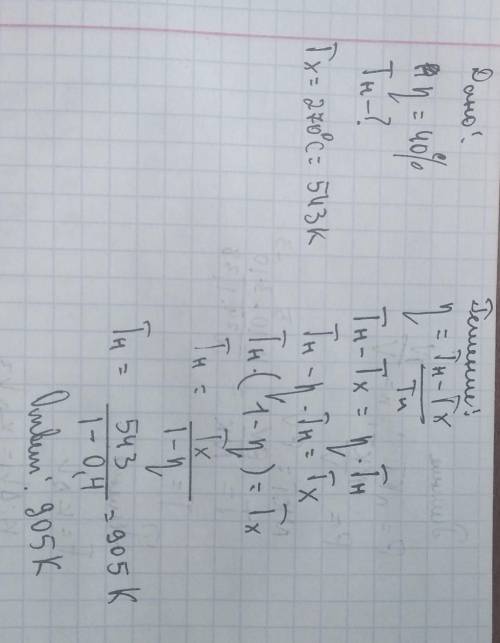 Дано:
η = 40%
Tн - ?
Tx = 270°C = 543 K
Решение:
η = Tн - Tx / Tн
Tн - Tx = η · Tн
Tн - η · Tн = Tx
Tн · (1 - η) = Tx
Tн = Tx / 1 - η
Tн = 543 / 1 - 0,4 = 905 K
Ответ: 905 K